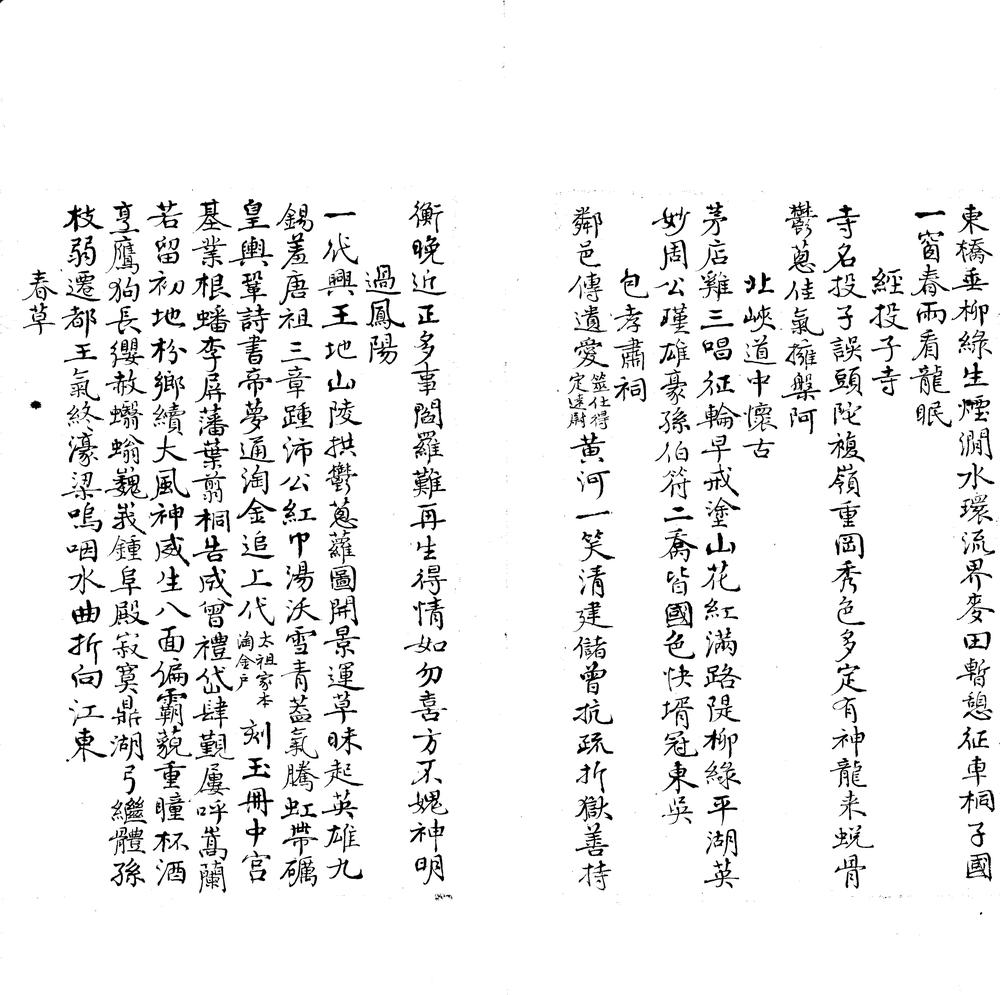 東橋垂柳綠生煙澗水環流界麥田暫憩征車桐子國
一窗春雨看龍眠
經投子寺
寺名投子誤頭陀複嶺重岡秀色多定有神龍来蛻骨
鬱蔥佳氣擁槃阿
北峽道中懷古
茅店雞三唱征輪早戒塗山花紅滿路隄柳綠平湖英
妙周公瑾雄豪孫伯符二喬皆國色快壻冠東吳
包孝肅祠
鄰邑傳遺愛筮仕得定遠尉黃河一笑清建儲曾抗疏折獄善持
衡晚近正多事閻羅難再生得情如勿喜方不媿神明
過鳳陽
一代興王地山陵拱鬱蔥蘿圖開景運草昧起英雄九
錫羞唐祖三章踵沛公紅巾湯沃雪青蓋氣騰虹帶礪
皇輿鞏詩書帝夢通淘金追上代太祖家本淘金戶刻玉冊中宮
基業根蟠李屏藩葉翦桐告成曾禮岱肆覲屢呼嵩蘭
若留初地枌鄉續大風神威生八面偏霸藐重瞳杯酒
烹鷹狗長纓赦蠮螉巍峩鍾阜殿寂寞鼎湖弓繼體孫
枝弱遷都王氣終濠梁嗚咽水曲折向江東
春草